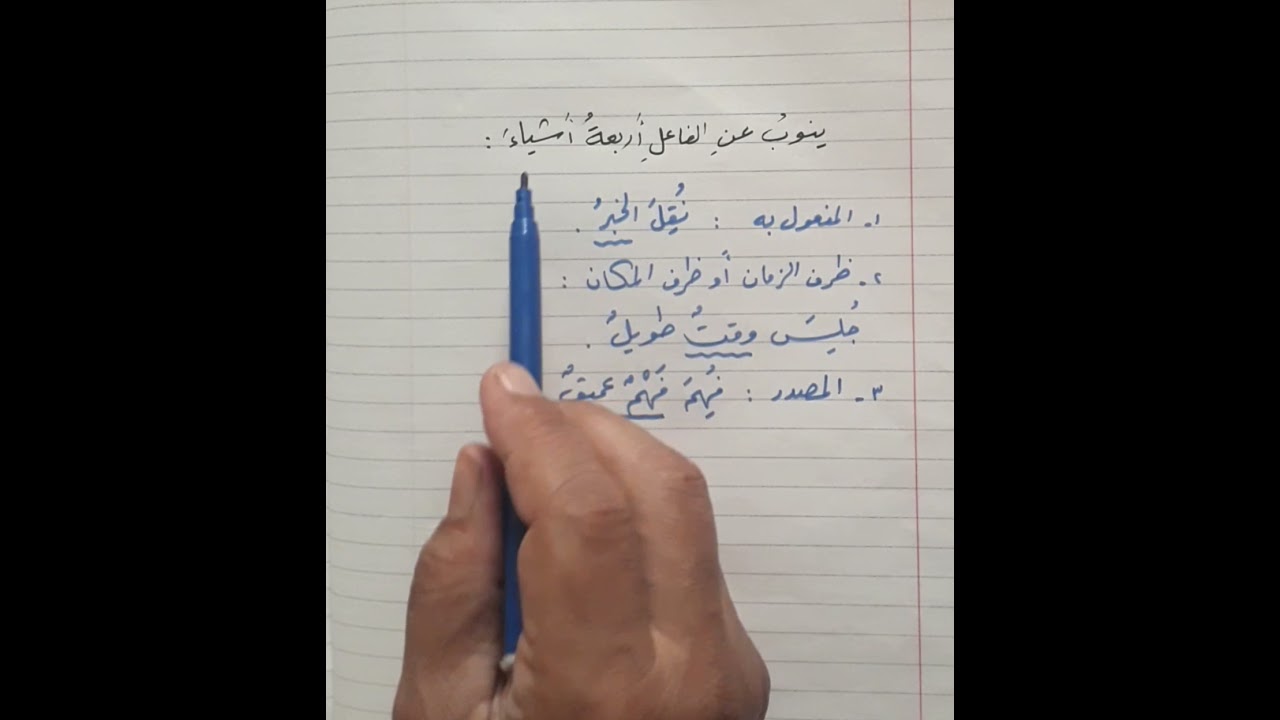 ينوبُ عنِ الفاعلِ أَربعةُ أَشياءَ :
١. المفعول به : نُقِلَ الخبرُ .
٢. ظرف الزمان أو ظرف المكان :
جُلِسَ وقتٌ طويلٌ .
٣. المصدر : فُهِمَ فَهْمٌ عميقٌ